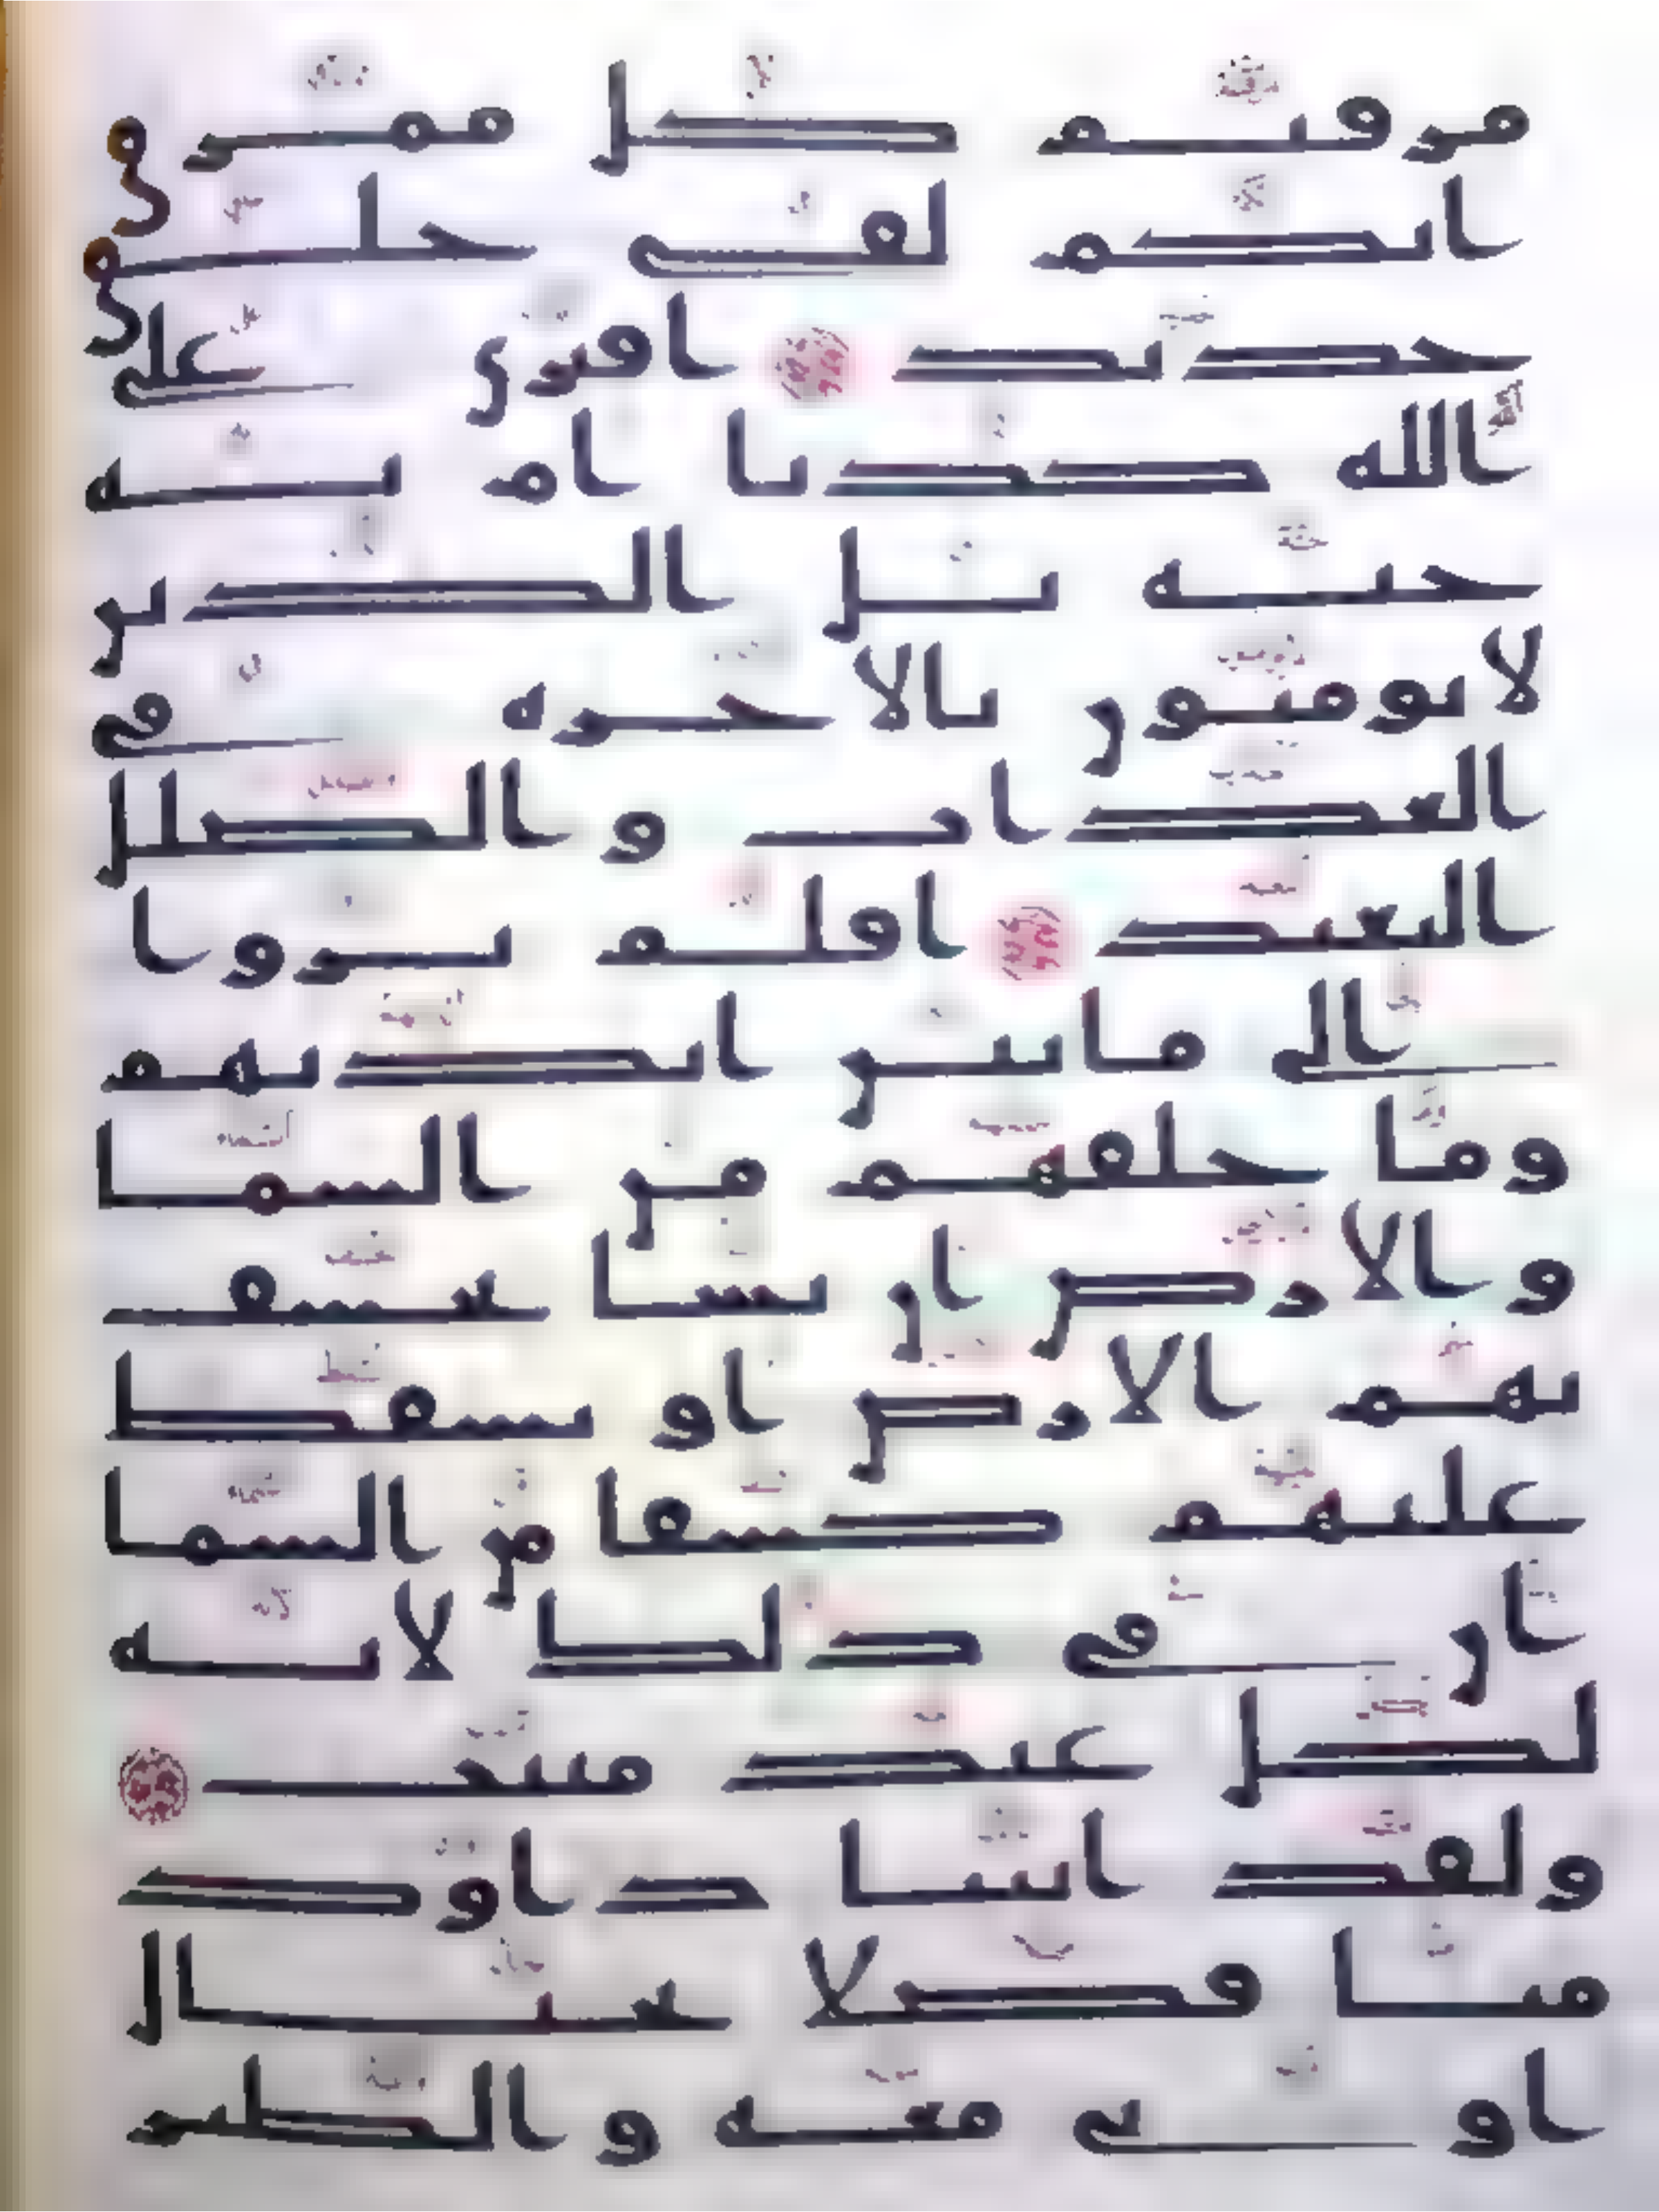 مزقتم كل ممزق
انكم لفى خلق
جديد افترى على
الله كذبا ام به
جنه بل الذين
لا يومنون بالاخره فى
العذاب والضلل
البعيد افلم يروا
الى ما بين ايديهم
وما خلفهم من السما
والارض ان نشا نخسف
بهم الارض او نسقط
عليهم كسفا من السما
ان فى ذلك لايه
لكل عبد منيب
ولقد اتينا داود
منا فضلا يجبال
اوبى معه والطير